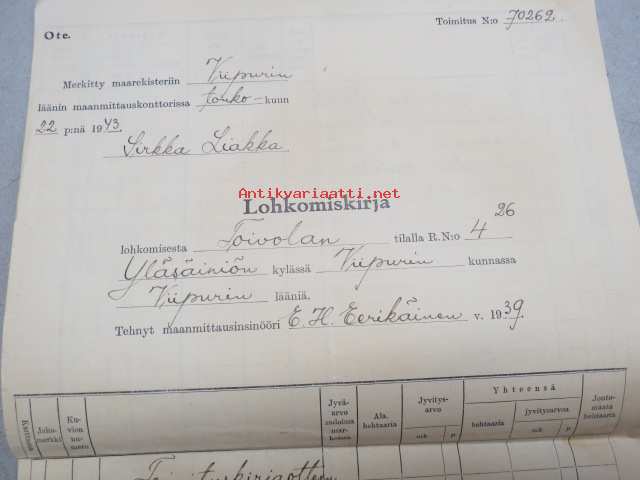 Ote.
Toimitus N:o 70262.
Merkitty maarekisteriin Viipurin
läänin maanmittauskonttorissa touko-kuun
22 p:nä 1943.
Sirkka Liakka
Antikvariaatti.net
Lohkomiskirja
lohkomisesta Toivolan tilalla R.N:o 4 26
Yläsäiniön kylässä Viipurin kunnassa
Viipurin lääniä.
Tehnyt maanmittausinsinööri E. H. Eerikäinen v. 1939.
Karttaosa Jako-merkki Ku-vion nu-mero Jyvä-arvo sadoissa mar-koissa Ala. hehtaaria Jyvitys-arvo Yhteensä Jouto-maata hehtaaria
hehtaaria jyvitysarvoa
mk p mk p
Toimituskirjaotteen